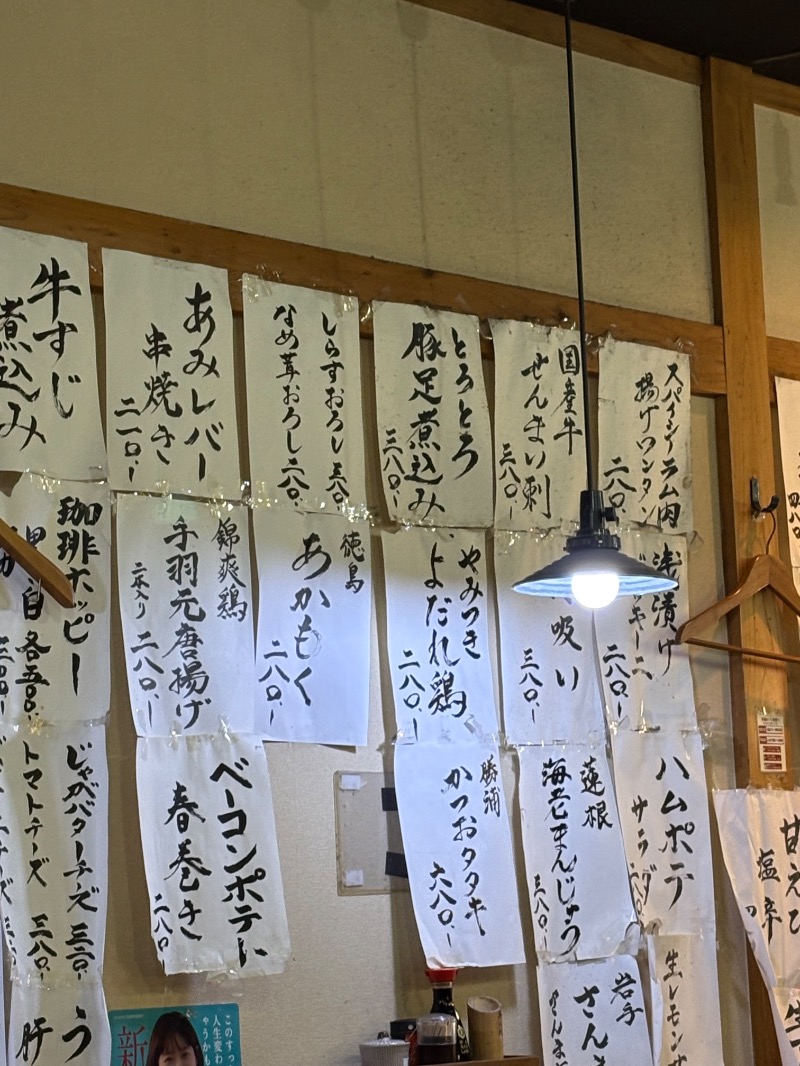 牛すじ
煮込み
あみレバー
串焼き
二一〇.-
しらすおろし 三八〇.
なめ茸おろし 二八〇.-
とろとろ
豚足煮込み
三八〇.-
国産牛
せんまい刺
三八〇.-
スパイシーラム肉
揚げワンタン
二八〇.
珈琲ホッピー
錦爽鶏
手羽元唐揚げ
二本入り 二八〇.-
徳島
あかもく
二八〇.-
やみつき
よだれ鶏
二八〇.-
吸い
三八〇.-
浅漬け
二八〇.-
じゃがバターチーズ 三三〇.-
トマトチーズ 三八〇.-
ベーコンポテい
春巻き
二八〇.-
勝浦
かつおタタキ
六八〇.-
蓮根
海老まんじゅう
三八〇.-
ハムポテ
サラダ
甘えび
塩辛
う
肝
岩手
さんま
生レモンサ
このすっ
人生変わ
ゃうかも
新